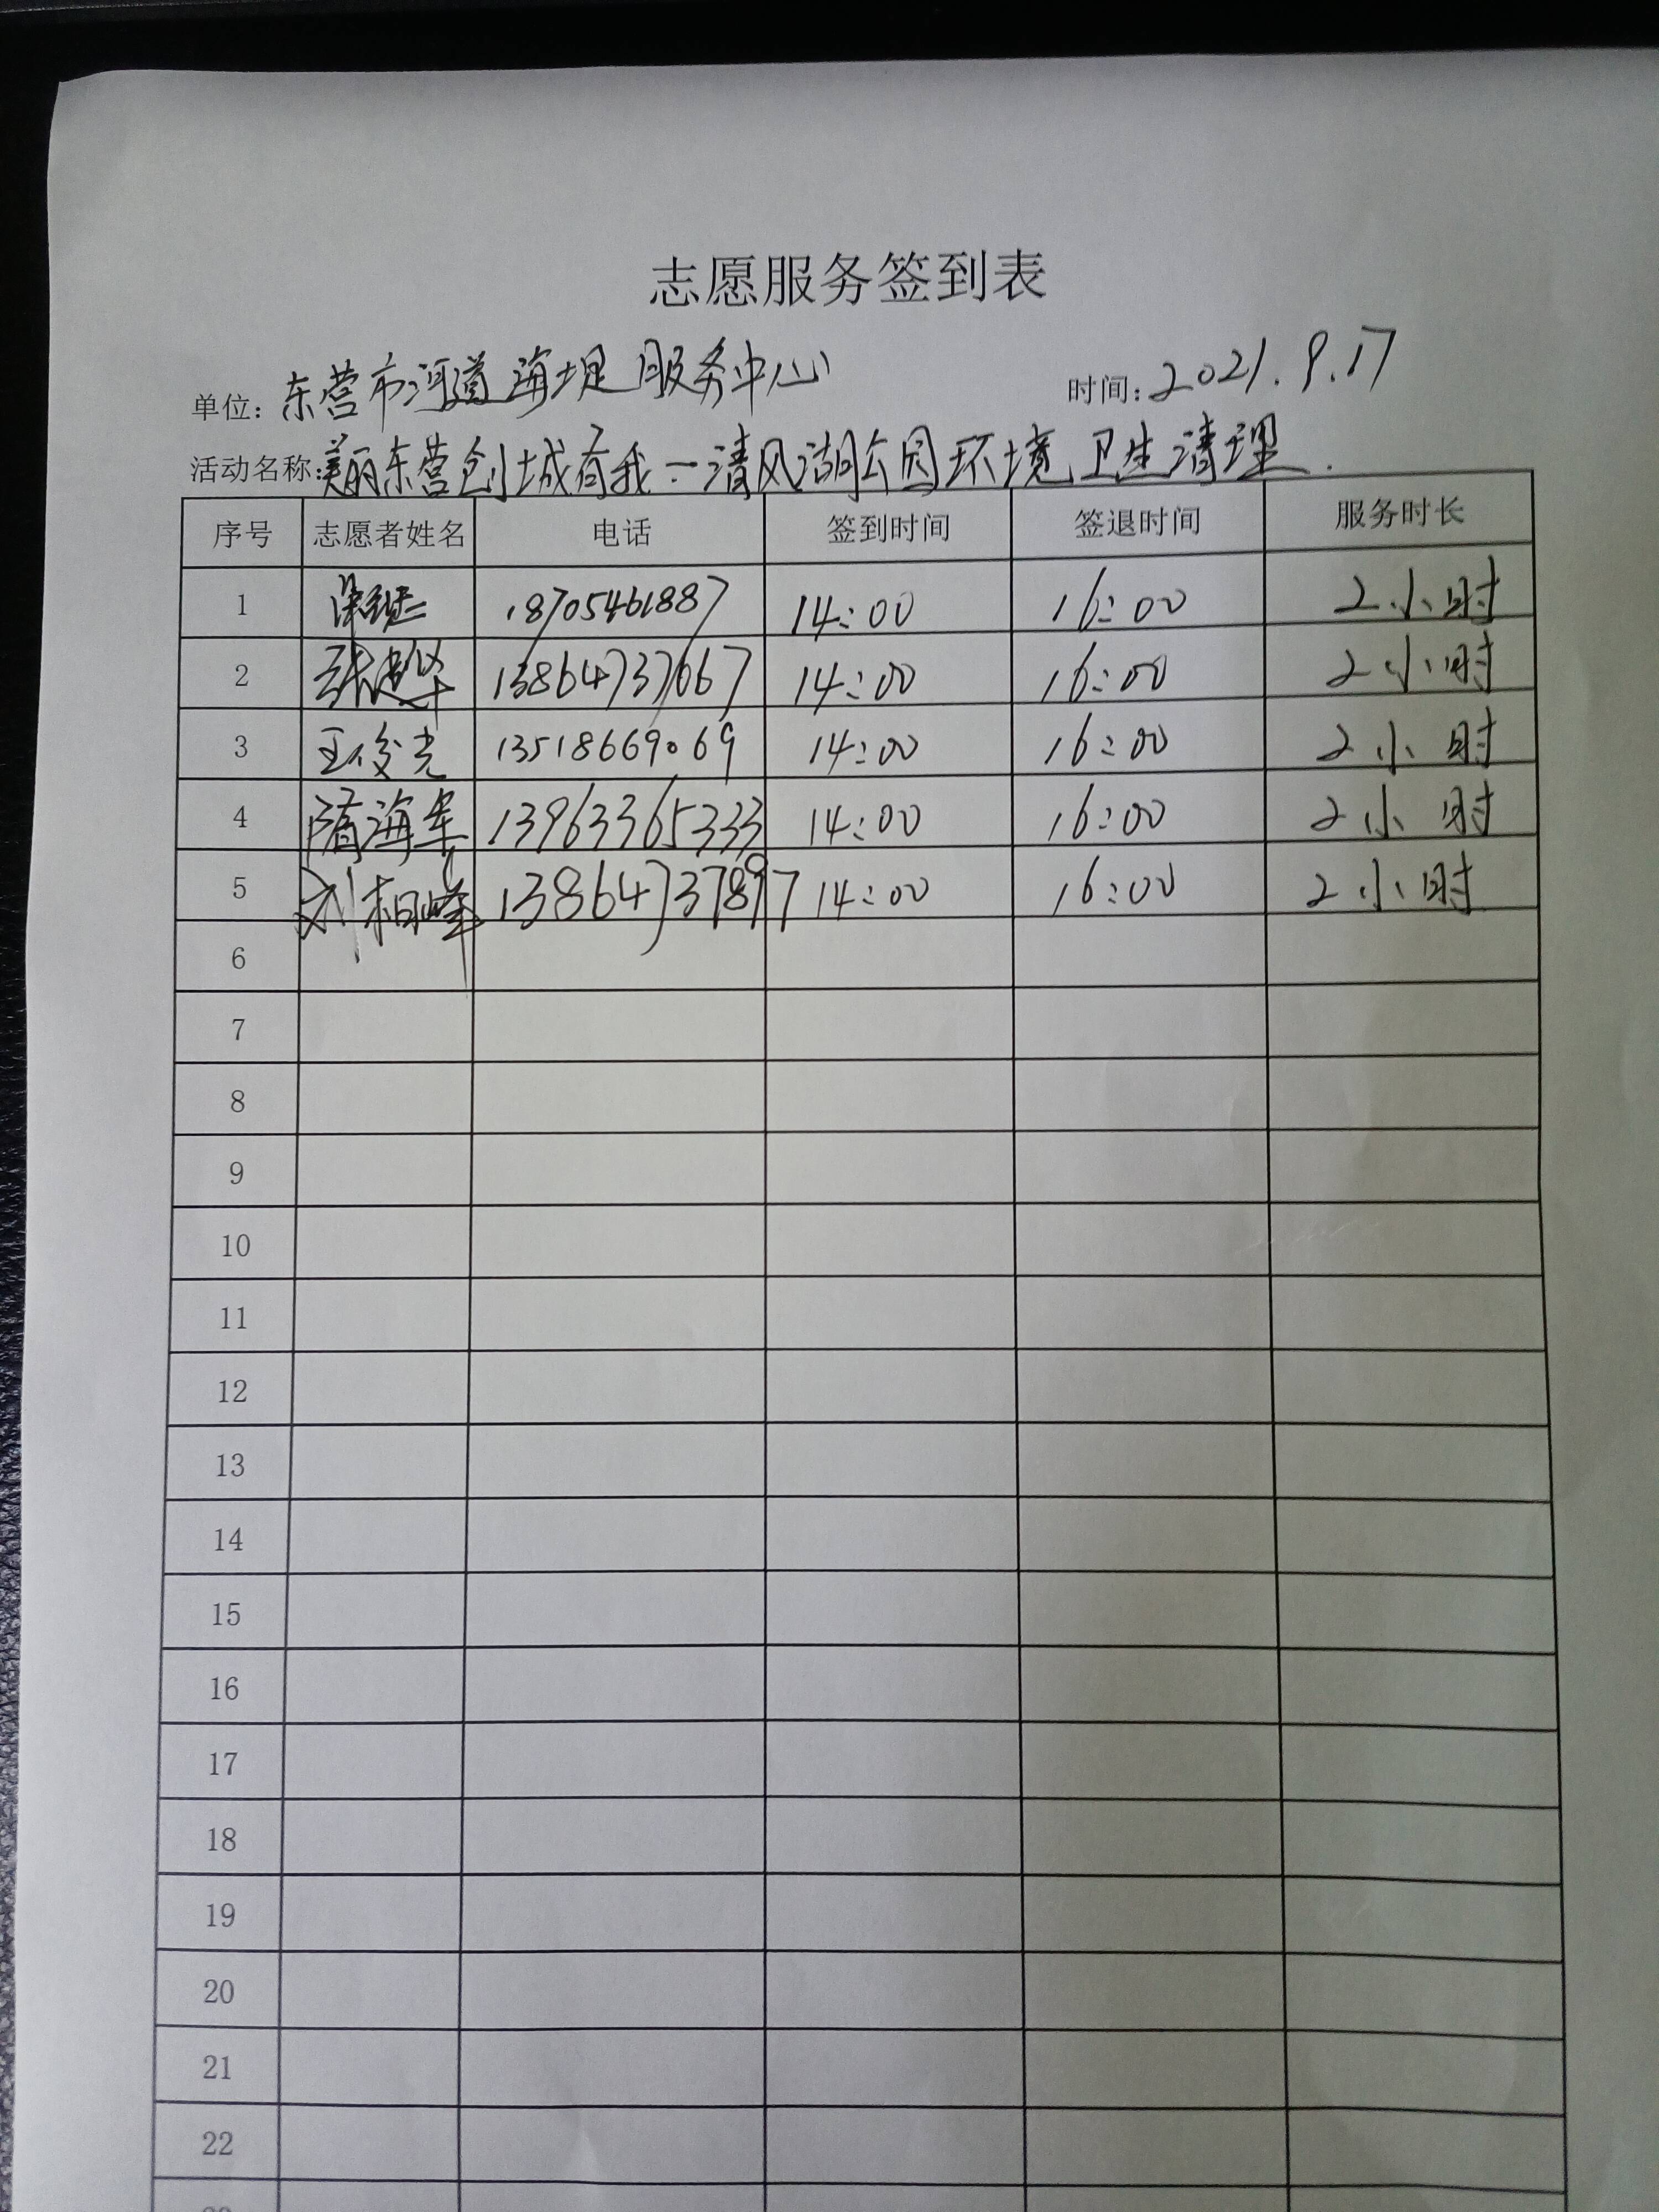 志愿服务签到表
单位:东营市河道海堤服务中心 时间:2021.9.17
活动名称:美丽东营创城有我—清风湖公园环境卫生清理.
序号 志愿者姓名 电话 签到时间 签退时间 服务时长
1 18705461887 14:00 16:00 2小时
2 张建华 13864737667 14:00 16:00 2小时
3 王俊光 13518669069 14:00 16:00 2小时
4 隋海军 13963365333 14:00 16:00 2小时
5 刘相峰 13864737897 14:00 16:00 2小时
6
7
8
9
10
11
12
13
14
15
16
17
18
19
20
21
22